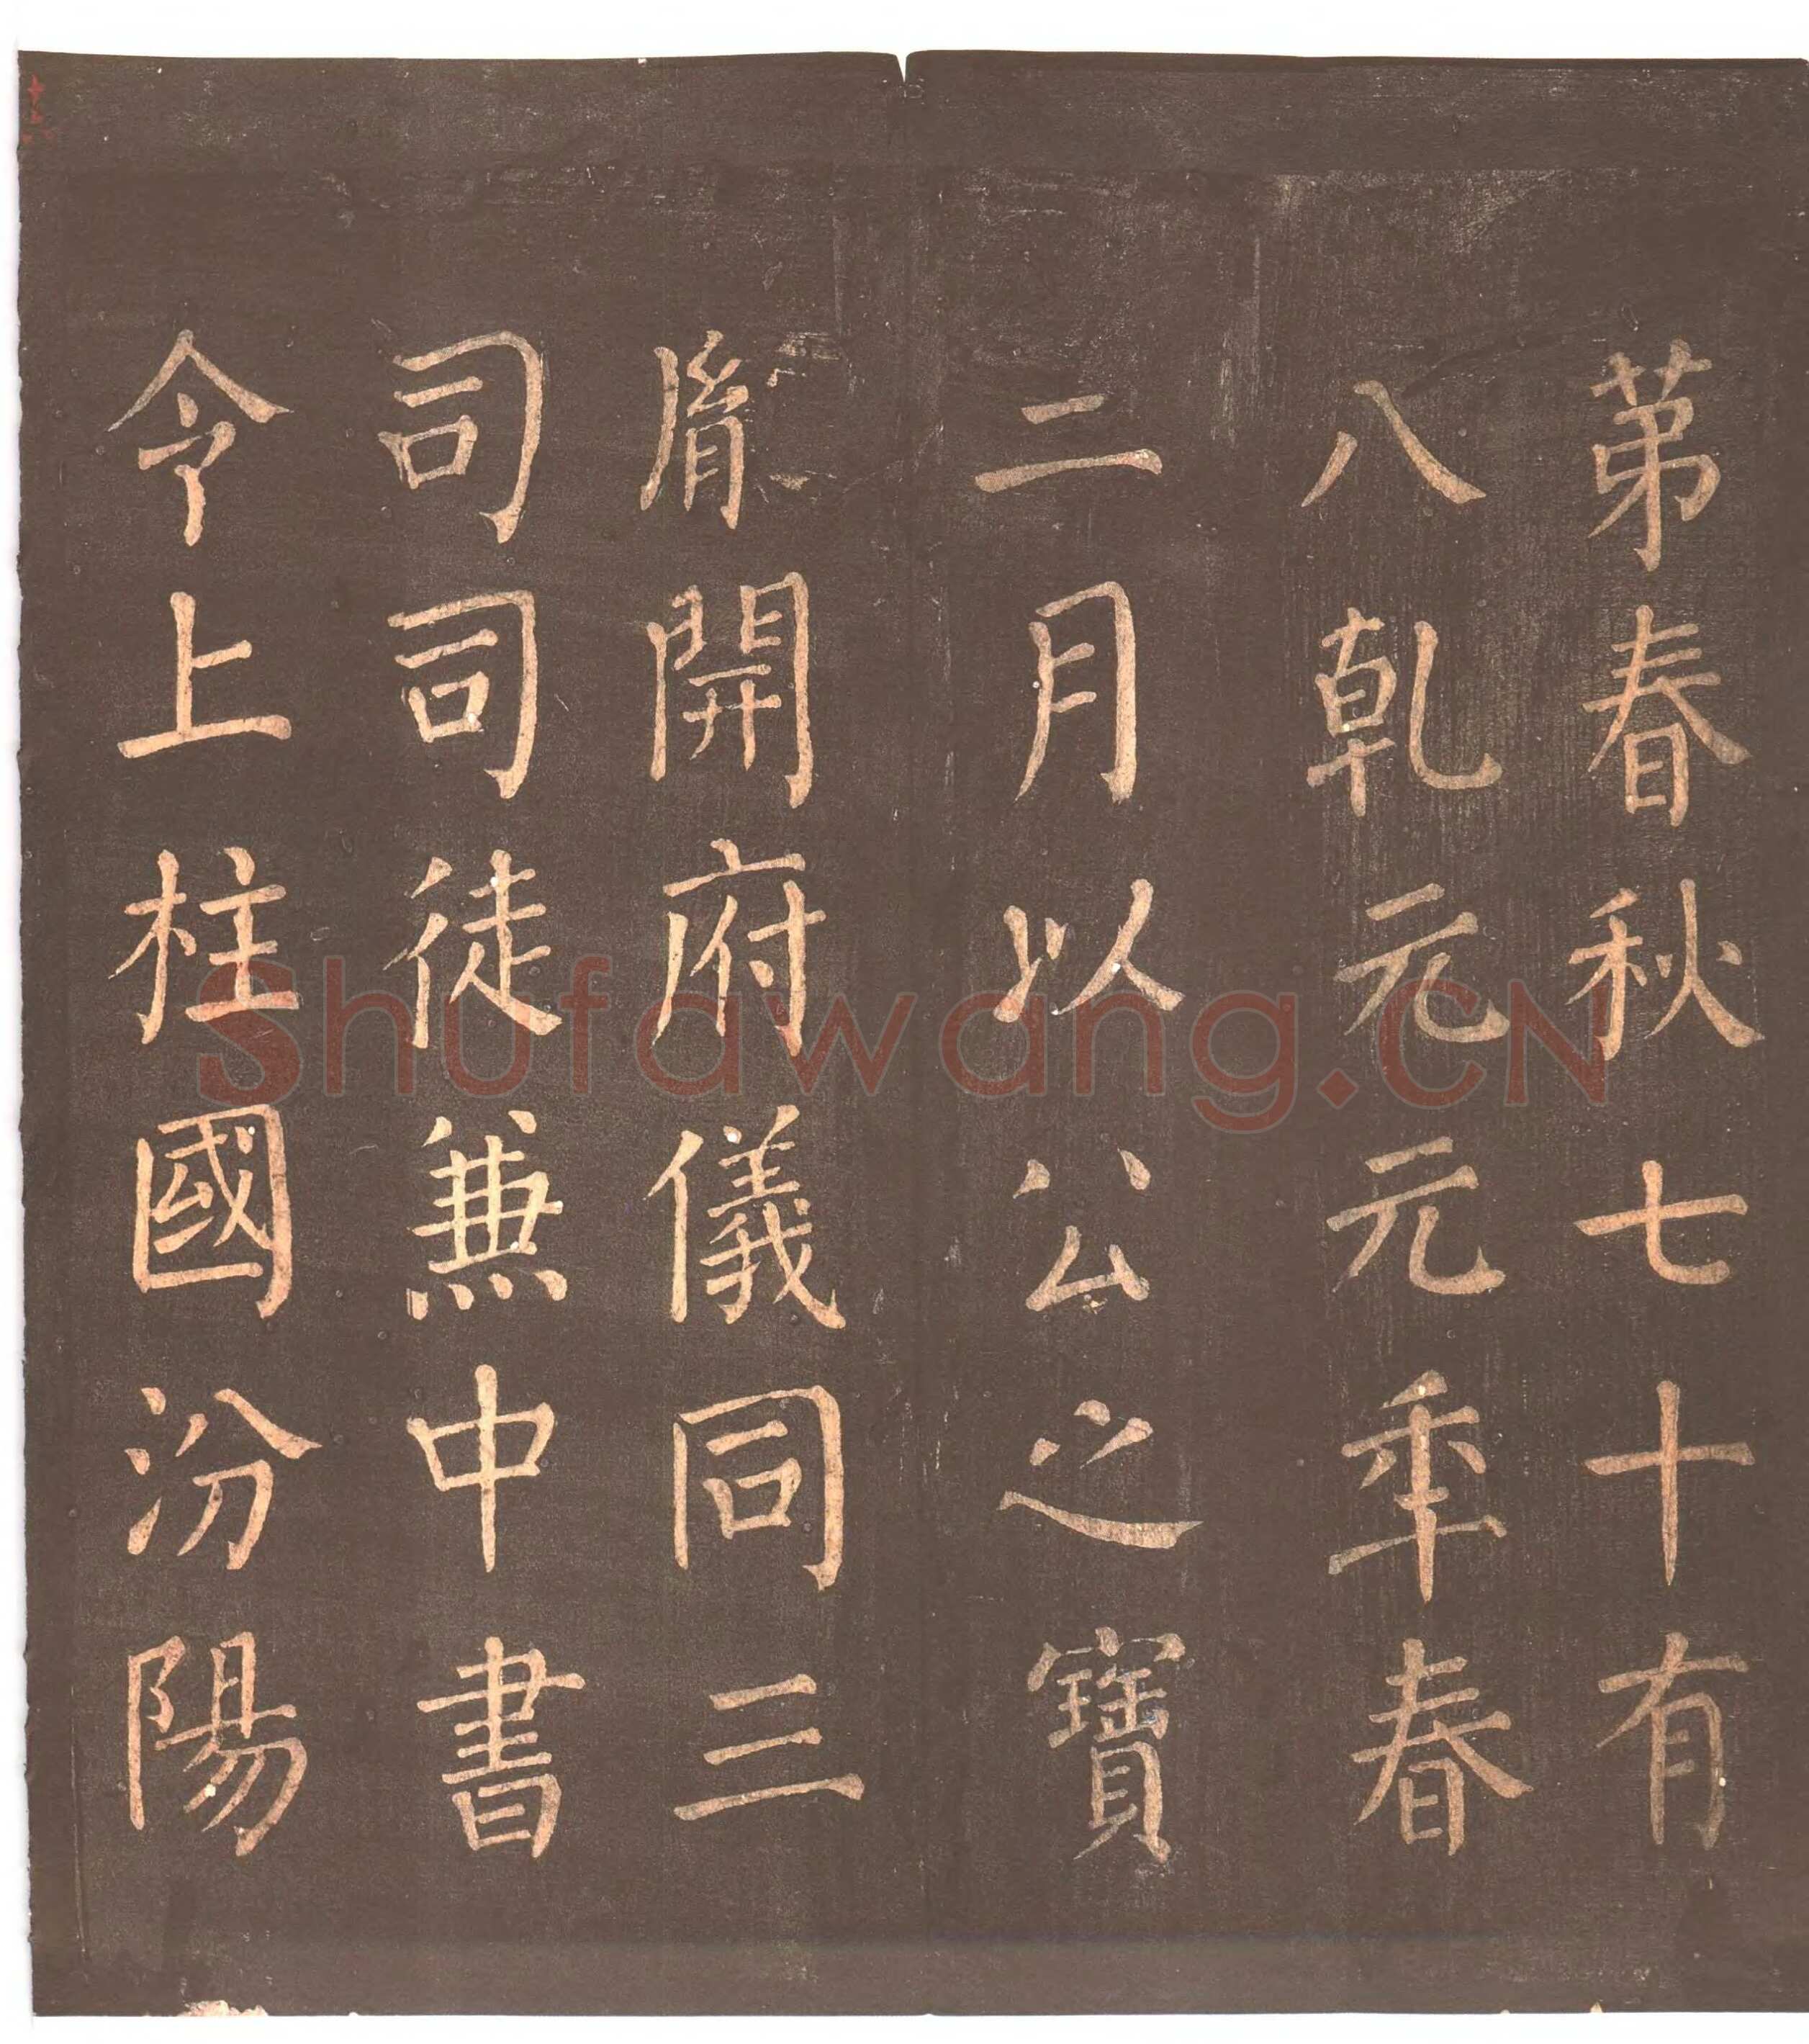 苐春秋七十有
八乹元元秊春
二月以公之寶
胤開府儀同三
司司徒兼中書
令上柱國汾陽
Shufawang.CN